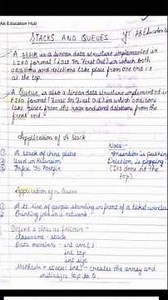 Ak Education Hub
STACKS AND QUEUES
A Stack is a linear data structure implemented in
LIFO format (Last In First Out) in which both
additions and deletions take place from one end i.e
at the top.
A Queue is also a linear data structure implemented in
FIFO format (First In First Out) in which additions
take place from the rear end and deletions from the
front end.
Application of A Stack
Note:-
A stack of
Insertion is pushing
Used in Recursion
Deletion is popping
Infix to Postfix
Application of a Queue
A line of people standing in front of a ticket window
Printing job in a network
Define a class as follows -
Classname - stack
Data members - int arr[ ]
int top
int size
Methods - stack( int) - creates the array and
initialize top to